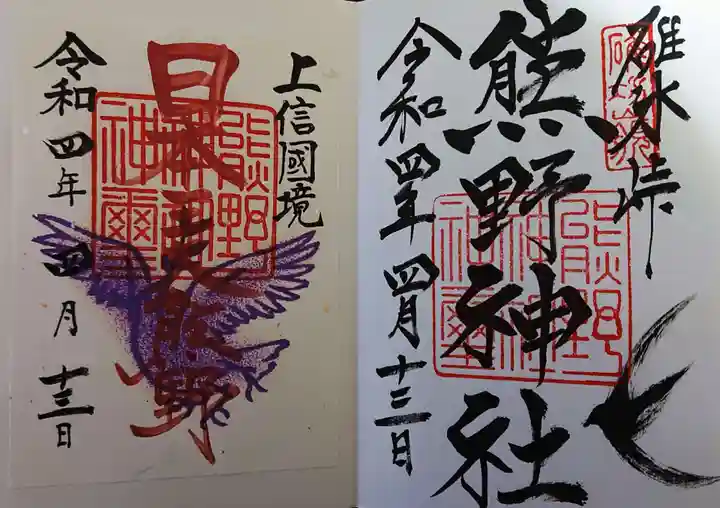 碓氷峠
熊野神社
令和四年四月十三日
上信國境
日本三熊野
令和四年四月十三日
熊野
神社
神璽
熊野
神社
神璽